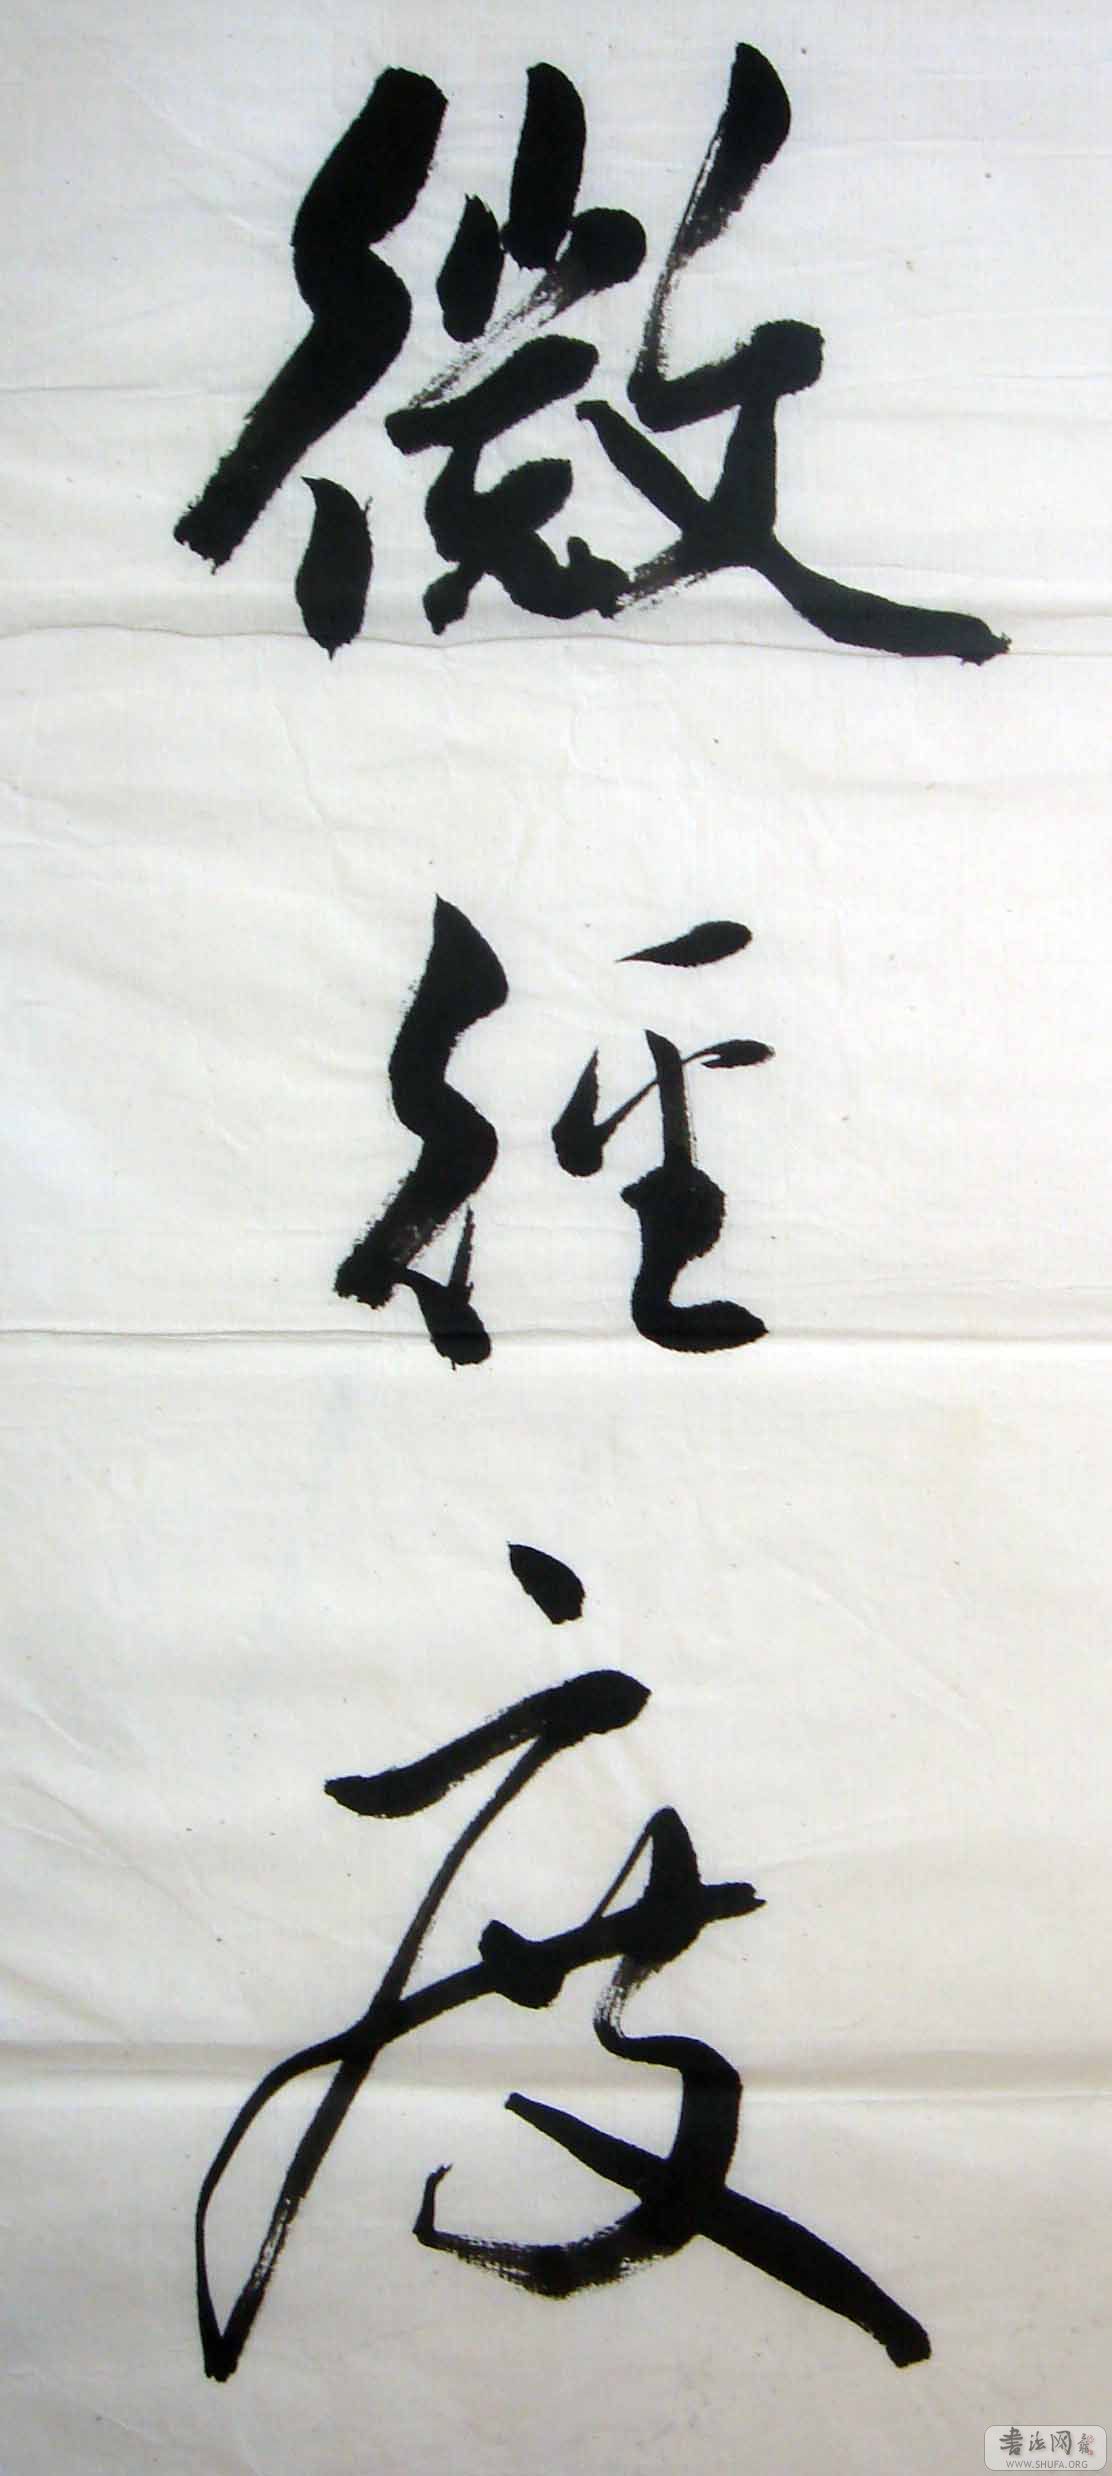 微
徑
度
書法网
WWW.SHUFA.ORG